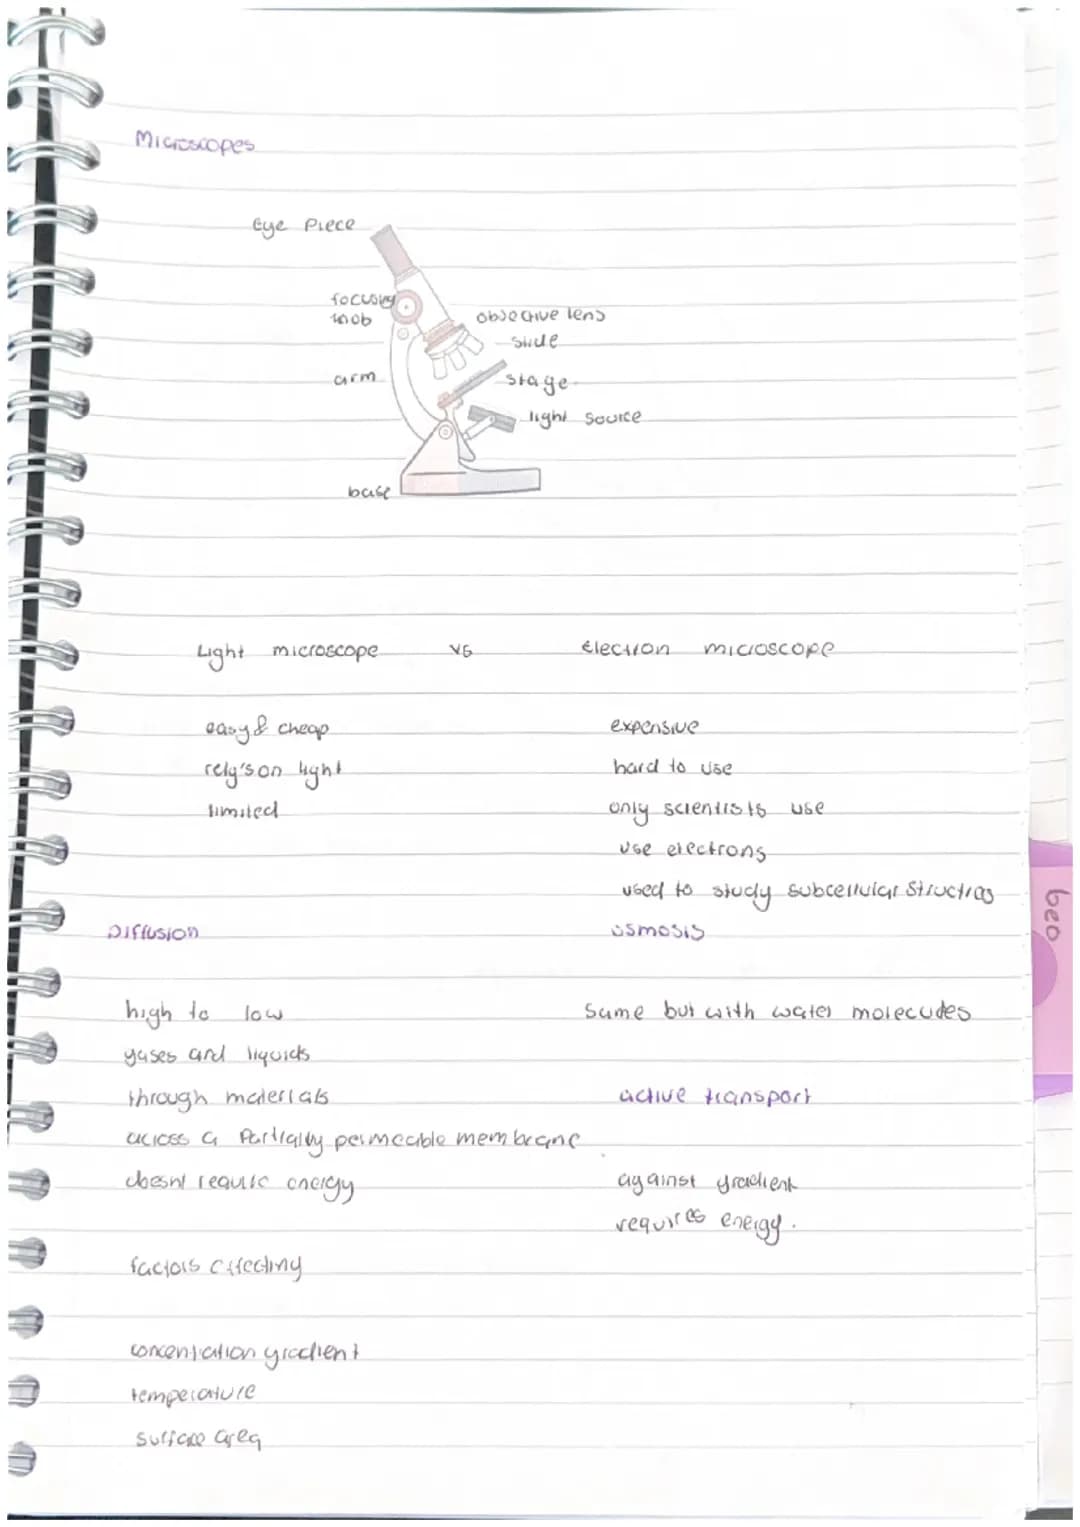 Microscopes
Eye Piece
focusing
knob
objective lens
slide
arm
stage
light source
base
Light microscope vs Electron microscope
easy & cheap
rely's on light
limited
expensive
hard to use
only scientists use
use electrons
used to study subcellular structres
Diffusion
high to low
gases and liquids
through materials
across a Partially permeable membrane
doesnt require energy
factors affecting
concentration gradient
temperature
surface area
osmosis
Same but with water molecules
active transport
against gradient
requires energy.
geo